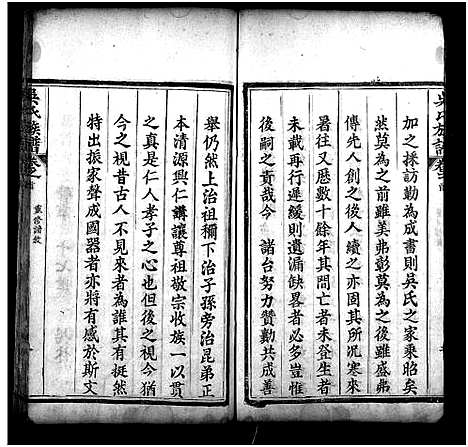 吳氏族譜 卷之首
加之採訪勤為成書則吳氏之家乘昭矣
然莫為之前雖美弗彰莫為之後雖盛弗
傳先人創之後人續之亦固其所況寒來
暑往又歷數十餘年其間亡者未登生者
未載再行遲緩則遺漏缺畧者必多豈惟
後嗣之責哉今 諸台努力贊勷共成善
舉仍然上治祖禰下治子孫旁治昆弟正
本清源興仁講讓尊祖敬宗收族一以貫
之真是仁人孝子之心也但後之視今猶
今之視昔古人不見來者為誰其有挺然
特出振家聲成國器者亦將有感於斯文
吳氏族譜 卷之首
重修譜敘